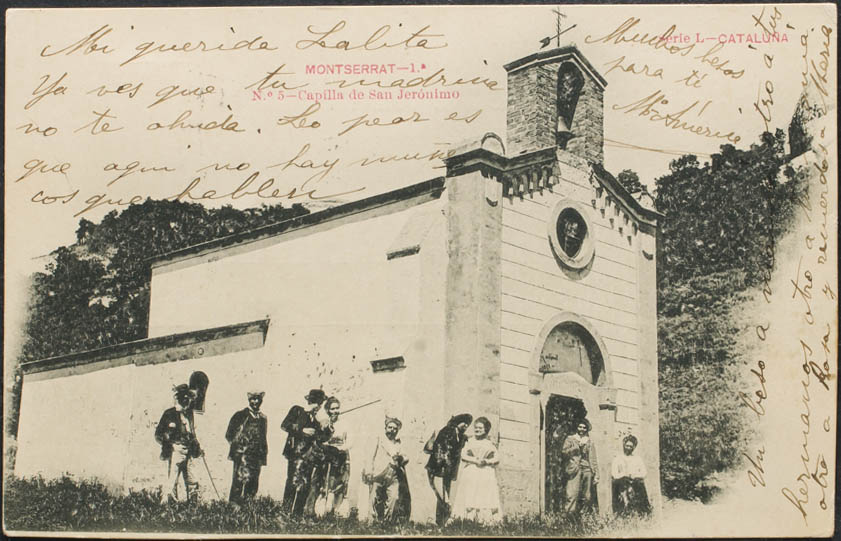 Mi querida Lalita
Ya ves que tu madrina
no te olvida. Lo peor es
que aqui no hay muñe
cos que hallen
MONTSERRAT—1.ª
N.º 5—Capilla de San Jerónimo
Serie L—CATALUÑA
Muchos besos
para tí
Mª América
Un beso a mamá otro a tus
hermanos otro a
otro a Rosa y recuerdos a Maria